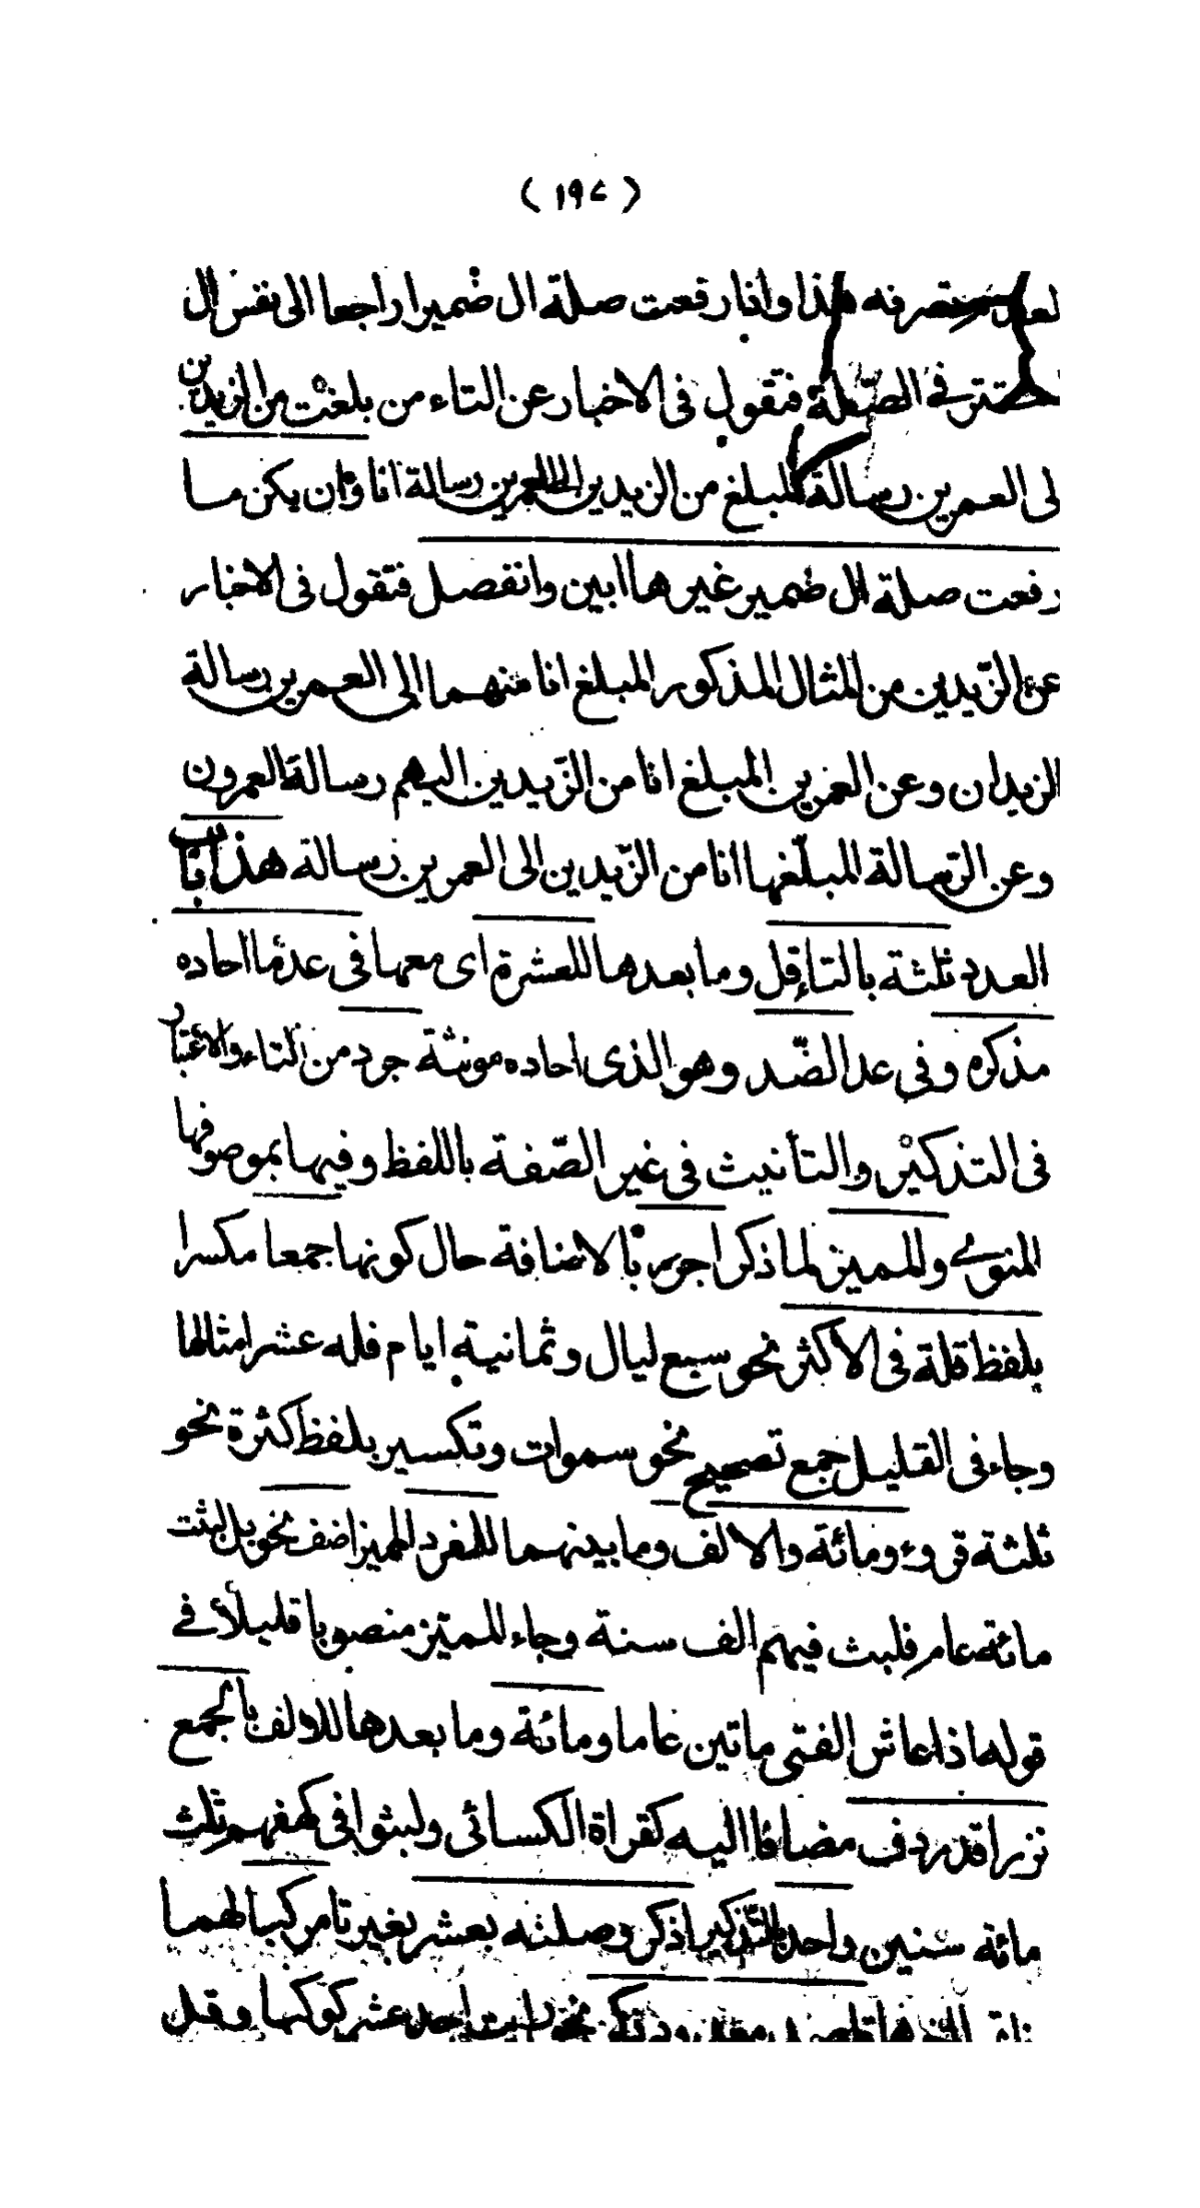 ( ١٩٧ )
تصرفه هذا وان رفعت صلة ال ضميرا راجعا الى نفس ال
استتر فى الصلة فتقول فى الاخبار عن التاء من بلغت من الزيدين
الى العمرين رسالة المبلغ من الزيدين الى العمرين رسالة انا وان يكن ما
رفعت صلة ال ضمير غيرها ابين وانفصل فتقول فى الاخبار
عن الزّيدين من المثال المذكور المبلغ انا منهما الى العمرين رسالة
الزيدان وعن العمرين المبلغ انا من الزّيدين اليهم رسالة العمرون
وعن الرّسالة المبلّغها انا من الزّيدين الى العمرين رسالة هذا باب
العدد ثلثة بالتاء قل وما بعدها للعشرة اى معها فى عدّ ما احاده
مذكره وفى عد الضّد وهو الذى احاده مونثة جرد من التاء والاعتبار
فى التذكير والتأنيث فى غير الصّفة باللفظ وفيها بموصوفها
المنوى والمميز لما ذكر اجرر بالاضافة حال كونها جمعا مكسرا
بلفظ قلة فى الاكثر نحو سبع ليال وثمانية ايام فله عشر امثالها
وجاء فى القليل جمع تصحيح نحو سموات وتكسير بلفظ كثرة نحو
ثلثة قروء ومائة والالف وما بينهما للمفرد المميز اضف نحو بل لبثت
مائة عام فلبث فيهم الف سنة وجاء المميّز منصوبا قليلاً فى
قوله اذا عاش الفتى ماتين عاما ومائة وما بعدها للالف بالجمع
نزرا قد ردف مضافا اليه كقراة الكسائى ولبثوا فى كهفهم ثلث
مائة سنين واحد بالتّذكير اذكر وصلنه بعشر بغير تا مركبا لهما
قاصد معدود ذكر نحو رايت احد عشر كوكبا وقل